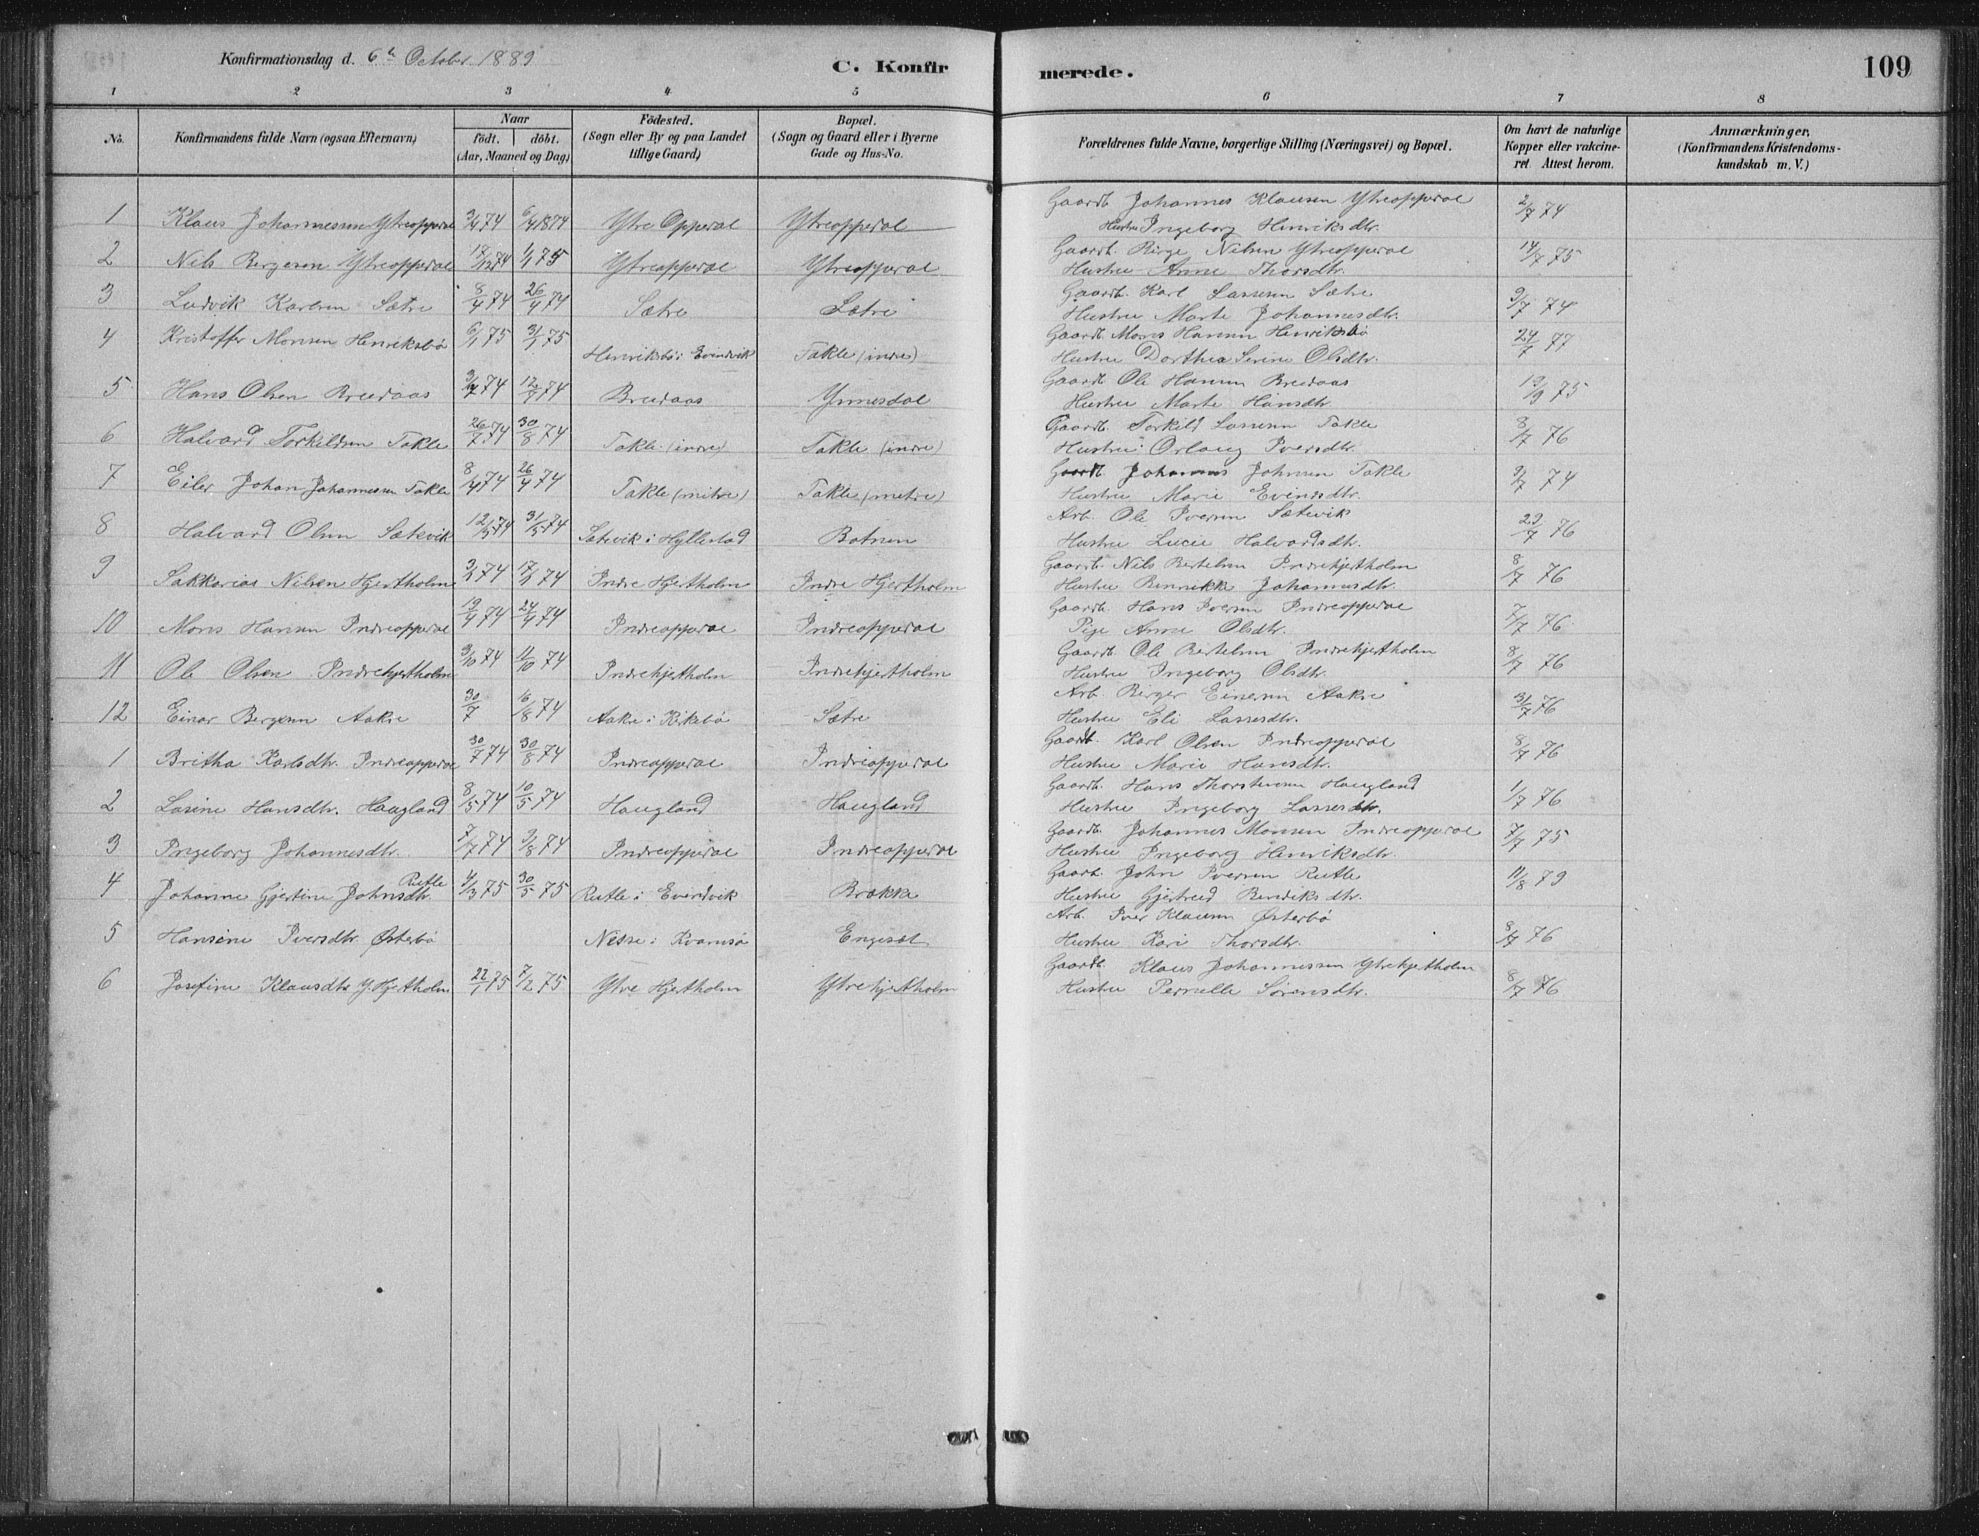 Konfirmationsdag d. 6te October 1889
C. Konfirmerede.
109
1 2 3 4 5 6 7 8
No.
Konfirmandens fulde Navn (ogsaa Efternavn)
Naar
födt. döbt.
(Aar, Maaned og Dag)
Födested.
(Sogn eller By og paa Landet
tillige Gaard)
Bopæl.
(Sogn og Gaard eller i Byerne
Gade og Hus-No.
Forældrenes fulde Navne, borgerlige Stilling (Næringsvei) og Bopæl.
Om havt de naturlige
Kopper eller vakcine-
ret Attest herom.
Anmærkninger,
(Konfirmandens Kristendoms-
kundskab m. V.)
1 Klaus Johannessen Ytreopperal 3/4 74 6/4 1874 Ytre Opperal Ytreopperal Gaardb. Johannes Klausen Ytreopperal 2/7 74
Hustru Ingeborg Henriksdtr.
2 Nils Bergesen Ytreopperal 17/12 74 1/1 75 Ytreopperal Ytreopperal Gaardb. Birge Nilsen Ytreopperal 14/7 75
Hustru Anne Thorsdtr.
3 Ludvik Karlsen Sætre 8/4 74 26/4 74 Sætre Sætre Gaardb. Karl Lassesen Sætre 9/7 74
Hustru Marte Johannesdtr.
4 Kristoffer Monsen Henriksbö 6/1 75 31/1 75 Henriksbö i Evindvik Takle (indre) Gaardb. Mons Hansen Henriksbö 24/7 77
Hustru Dorthea Serine Olsdtr.
5 Hans Olsen Breidaas 74 12/7 74 Breidaas Ynnesdal Gaardb. Ole Hansen Breidaas 19/9 75
Hustru Marte Hansdtr.
6 Halvard Torkildsen Takle 26/7 74 30/8 74 Takle (indre) Takle (indre) Gaardb. Torkild Lassesen Takle 8/7 76
Hustru Orlaug Iversdtr.
7 Eiler Johan Johannessen Takle 8/4 74 26/4 74 Takle (mitre) Takle (mitre) Gaardb. Johannes Johnsen Takle 3/7 74
Hustru Marie Evindsdtr.
8 Halvard Olsen Sætevik 12/5 74 31/5 74 Sætevik i Hyllestad Botnen Arb. Ole Iversen Sætevik 29/7 76
Hustru Lucie Halvardsdtr.
9 Sakkarias Nilsen Hjertholm 3/2 74 17/2 74 Indre Hjertholm Indre Hjertholm Gaardb. Nils Bertelsen Indrehjertholm 8/7 76
Hustru Rennikke Johannesdtr.
10 Mons Hansen Indreopperal 19/4 74 24/4 74 Indreopperal Indreopperal Gaardb. Hans Iversen Indreopperal 7/7 76
Pige Anne Olsdtr.
11 Ole Olsen Indrehjertholm 9/10 74 11/10 74 Indrehjertholm Indrehjertholm Gaardb. Ole Bertelsen Indrehjertholm 8/7 76
Hustru Ingeborg Olsdtr.
12 Einar Bergesen Aakre 30/7 16/8 74 Aakre i Kirkebö Sætre Arb. Berger Einersen Aakre 31/7 76
Hustru Eli Lassesdtr.
1 Britha Karlsdtr. Indreopperal 30/7 74 30/8 74 Indreopperal Indreopperal Gaardb. Karl Olsen Indreopperal 8/7 76
Hustru Marie Hansdtr.
2 Lasine Hansdtr. Haugland 8/5 74 10/5 74 Haugland Haugland Gaardb. Hans Thorstensen Haugland 1/7 76
Hustru Ingeborg Lassesdtr.
3 Ingeborg Johannesdtr. 7/7 74 9/8 74 Indreopperal Indreopperal Gaardb. Johannes Monsen Indreopperal 7/7 75
Hustru Ingeborg Henriksdtr.
4 Johanne Gjertine Johnsdtr. Rutle 4/3 75 30/5 75 Rutle i Evindvik Brække Gaardb. John Iversen Rutle 11/8 79
Hustru Gjertrud Bendiksdtr.
5 Hansine Iversdtr. Østerbö Nesse i Kvamsö Engesæt Arb. Iver Klausen Østerbö 8/7 76
Hustru Kari Thorsdtr.
6 Josefine Klausdtr Y. Hjertholm 22/1 75 7/2 75 Ytre Hjertholm Ytrehjertholm Gaardb. Klaus Johannessen Ytrehjertholm 8/7 76
Hustru Pernille Sörensdtr.